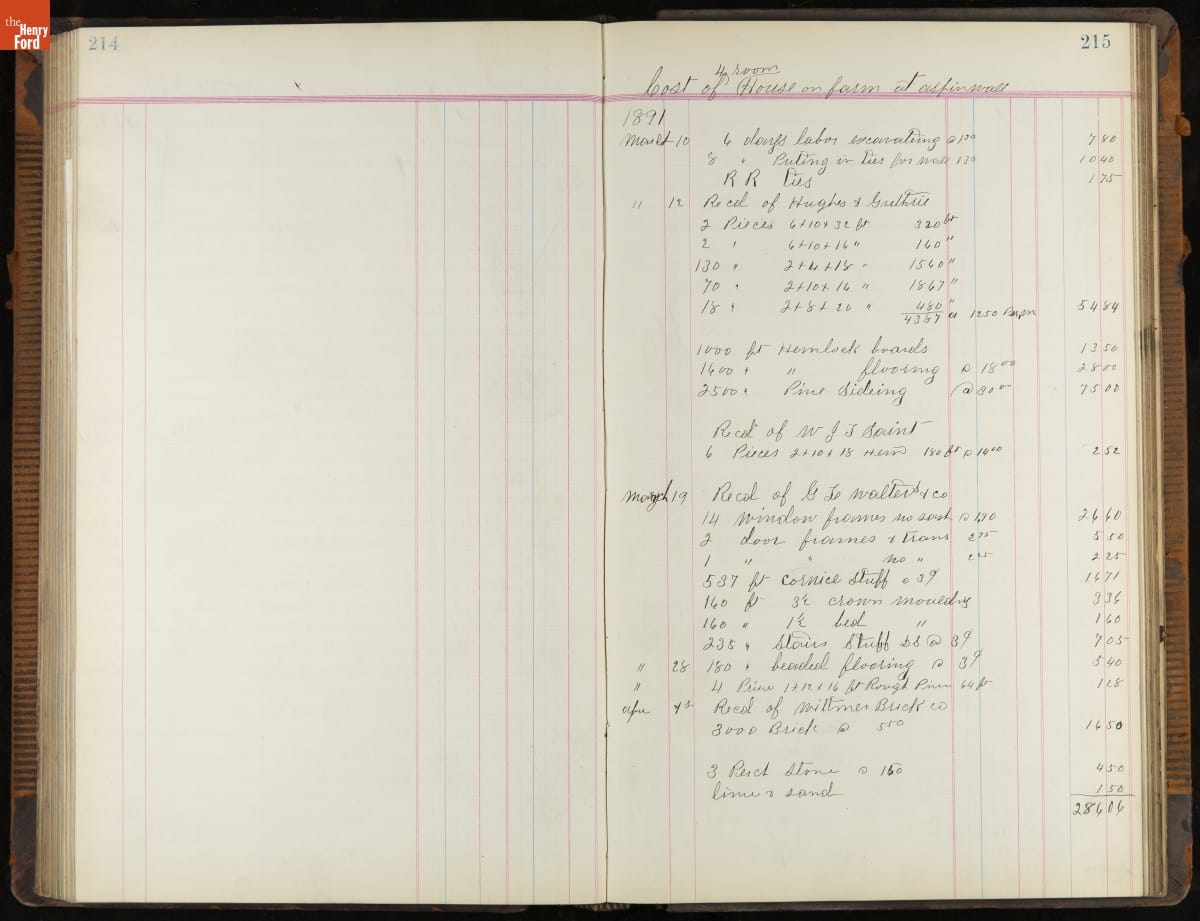 the Henry Ford
214
215
4 room
Cost of House on farm at aspinwall
1891
March 10 6 days labor excavating @ 130 780
8 " Puting in ties for wall 130 1040
R R ties 175
" 12 Recd of Hughes & Guthrie
2 Pieces 6+10+32 ft 320 ft
2 " 6+10+16 " 160 "
130 " 2+4+18 " 1560 "
70 " 2+10+16 " 1867 "
18 " 2+8+20 " 480 "
4387 @ 1250 Per m 5484
1000 ft Hemlock boards 1350
1600 " " flooring @ 18 00 2800
2500 " Pine Sideing @ 30 00 7500
Recd of W J S Saint
6 Pieces 2+10+18 Hem 180 ft @ 14 00 252
March 19 Recd of G L Walters & co
14 window frames no sash @ 1.90 2660
2 door frames & trans 275 550
1 " " no " 225 225
537 ft Cornice Stuff @ 3¢ 1671
160 ft 3½ crown moulding 336
160 " 1½ bed " 160
235 " Stairs Stuff DS @ 3¢ 705
" 28 180 " beaded flooring @ 3¢ 540
" 4 Pine 1+12+16 ft Rough Pine 64 ft 128
Apr Recd of Wittmer Brick co
3000 Brick @ 550 1650
3 Perch Stone @ 150 450
lime & sand 150
28606